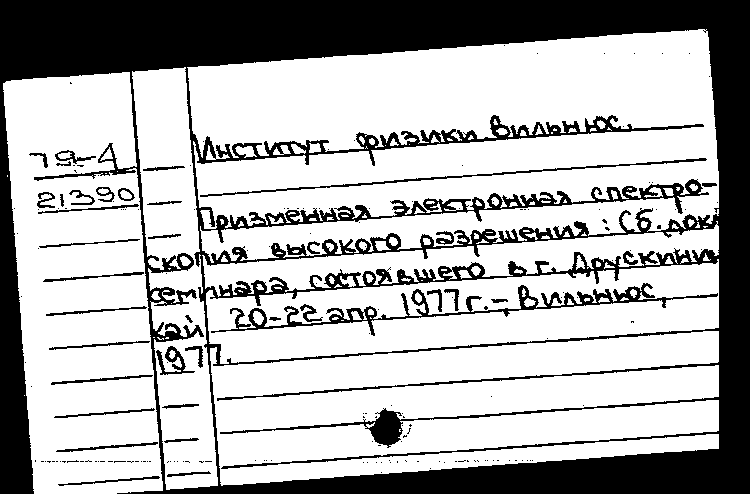 79-4
21390
Институт физики Вильнюс.
Призменная электронная спектро-
скопия высокого разрешения: Сб. докл
семинара, состоявшего в г. Друскинин
кай 20-22 апр. 1977 г.-, Вильнюс,
1977.